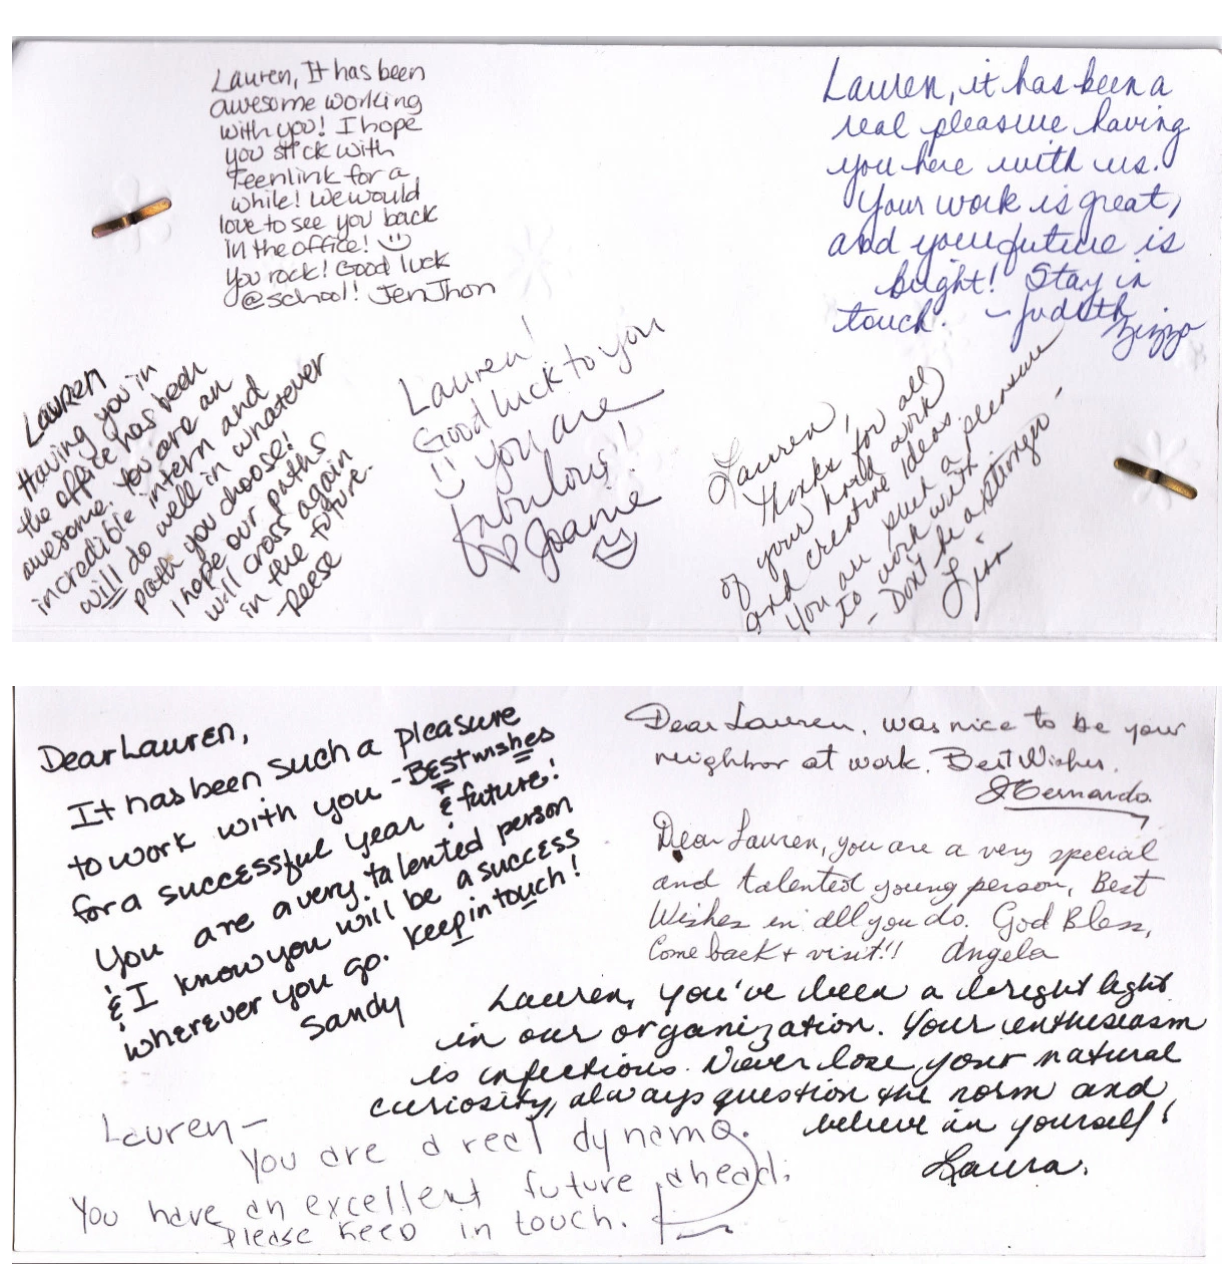 Lauren, It has been
awesome working
with you! I hope
you stick with
Teenlink for a
while! We would
love to see you back
in the office!
You rock! Good luck
@school! Jen Jhon
Lauren, it has been a
real pleasure having
you here with us.
Your work is great,
and your future is
bright! Stay in
touch. ~ Judith
Zizzo
Lauren
Having you in
the office has been
awesome. You are an
incredible intern and
will do well in whatever
path you choose!
I hope our paths
will cross again
in the future.
-Reese
Lauren!
Good luck to you
you are
fabulous!
Joanie
Lauren,
Thanks for all
of your hard work
and creative ideas.
You are such a pleasure
to work with.
- Don't be a stranger -
Lisa
Dear Lauren,
It has been such a pleasure
to work with you - Best wishes
for a successful year & future!
You are a very talented person
& I know you will be a success
wherever you go. Keep in touch!
Sandy
Dear Lauren, was nice to be your
neighbor at work. Best Wishes.
Bernardo
Dear Lauren, you are a very special
and talented young person, Best
Wishes in all you do. God Bless,
Come back + visit!! Angela
Lauren, you've been a bright light
in our organization. Your enthusiasm
is infectious. Never lose your natural
curiosity, always question the norm and
believe in yourself!
Laura.
Lauren-
You are a real dynamo.
You have an excellent future ahead.
Please keep in touch.